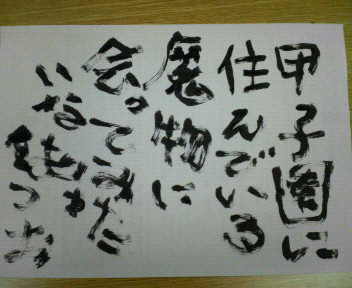 甲子園に
住んでいる
魔物に
会ってみた
いな